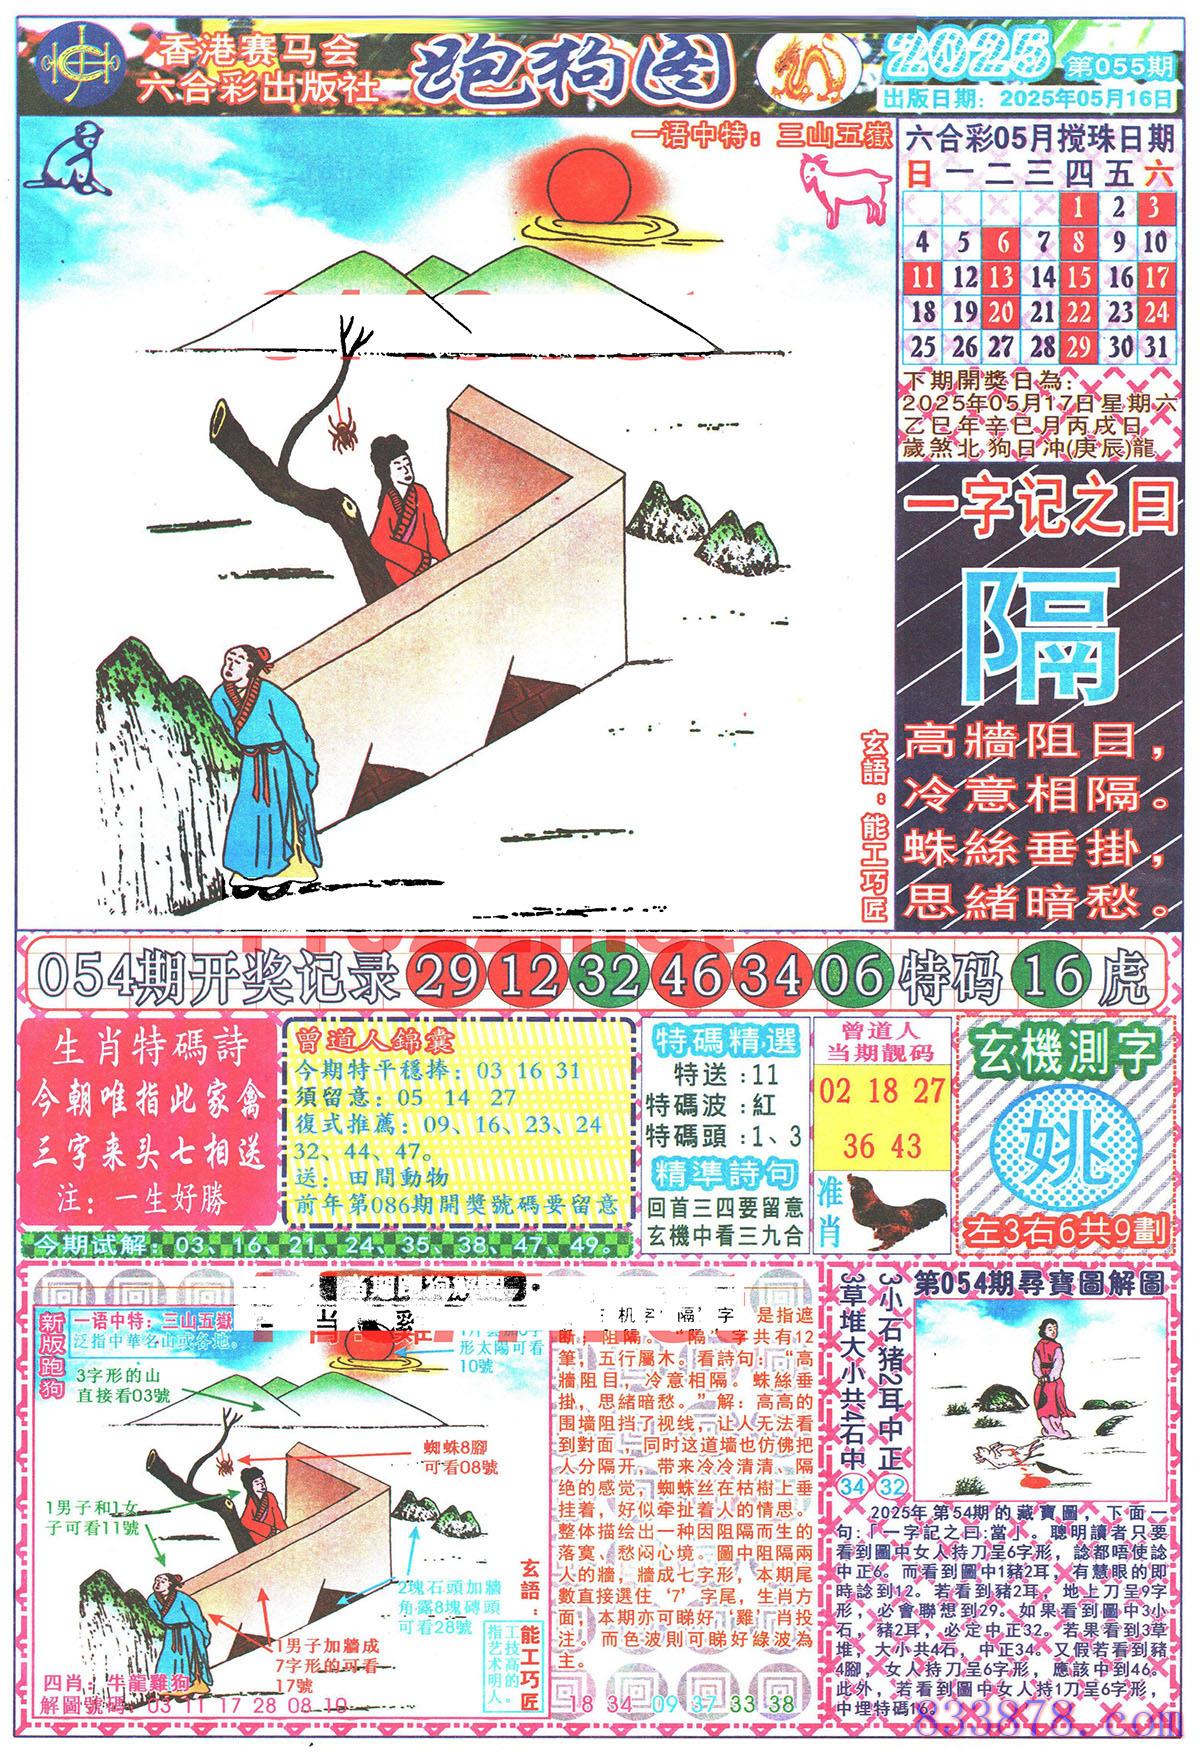 香港赛马会
六合彩出版社
跑狗图
2025
第055期
出版日期：2025年05月16日
一语中特：三山五嶽
玄語：能工巧匠
六合彩05月搅珠日期
日一二三四五六
1 2 3
4 5 6 7 8 9 10
11 12 13 14 15 16 17
18 19 20 21 22 23 24
25 26 27 28 29 30 31
下期開獎日為：
2025年05月17日星期六
乙巳年辛巳月丙戌日
歲煞北 狗日冲(庚辰)龍
一字记之曰
隔
高牆阻目，
冷意相隔。
蛛絲垂掛，
思緒暗愁。
054期开奖记录 29 12 32 46 34 06 特码 16 虎
生肖特碼詩
今朝唯指此家禽
三字来头七相送
注：一生好勝
曾道人錦囊
今期特平穩捧：03 16 31
須留意：05 14 27
復式推薦：09、16、23、24
32、44、47。
送：田間動物
前年第086期開獎號碼要留意
今期试解：03、16、21、24、35、38、47、49。
特碼精選
特送：11
特碼波：紅
特碼頭：1、3
精準詩句
回首三四要留意
玄機中看三九合
曾道人
当期靓码
02 18 27
36 43
准肖
玄機測字
姚
左3右6共9劃
新版跑狗
一语中特：三山五嶽
泛指中華名山或各地。
3字形的山
直接看03號
形太陽可看
10號
蜘蛛8腳
可看08號
1男子和1女
子可看11號
2塊石頭加牆
角露8塊磚頭
可看28號
1男子加牆成
7字形的可看
17號
玄語：能工巧匠
工技高的
指艺术明人。
四肖：牛龍雞狗
解圖號碼：03 11 17 28 08 10
机字“隔”字是指遮
断；阻隔。“隔”字共有12
筆，五行屬木。看詩句：“高
牆阻目，冷意相隔。蛛絲垂
掛，思緒暗愁。”解：高高的
围墙阻挡了视线，让人无法看
到對面，同时这道墙也仿佛把
人分隔开，带来冷冷清清、隔
绝的感觉，蜘蛛丝在枯樹上垂
挂着，好似牵扯着人的情思。
整体描绘出一种因阻隔而生的
落寞、愁闷心境。圖中阻隔兩
人的牆，牆成七字形，本期尾
數直接選住‘7’字尾，生肖方
面；本期亦可睇好‘雞’肖投
注。而色波則可睇好綠波為
主。
18 34 09 37 33 38
第054期尋寶圖解圖
3小石猪2耳中正
32
3草堆大小共4石中
34
2025年第54期的藏寶圖，下面一
句：「一字記之曰：當」。聰明讀者只要
看到圖中女人持刀呈6字形，諗都唔使諗
中正6。而看到圖中1豬2耳，有慧眼的即
時諗到12。若看到豬2耳，地上刀呈9字
形，必會聯想到29。如果看到圖中3小
石，豬2耳，必定中正32。若果看到3草
堆，大小共4石，中正34。又假若看到豬
4腳，女人持刀呈6字形，應該中到46。
此外，若看到圖中女人持1刀呈6字形，
中埋特碼16。
833878.com